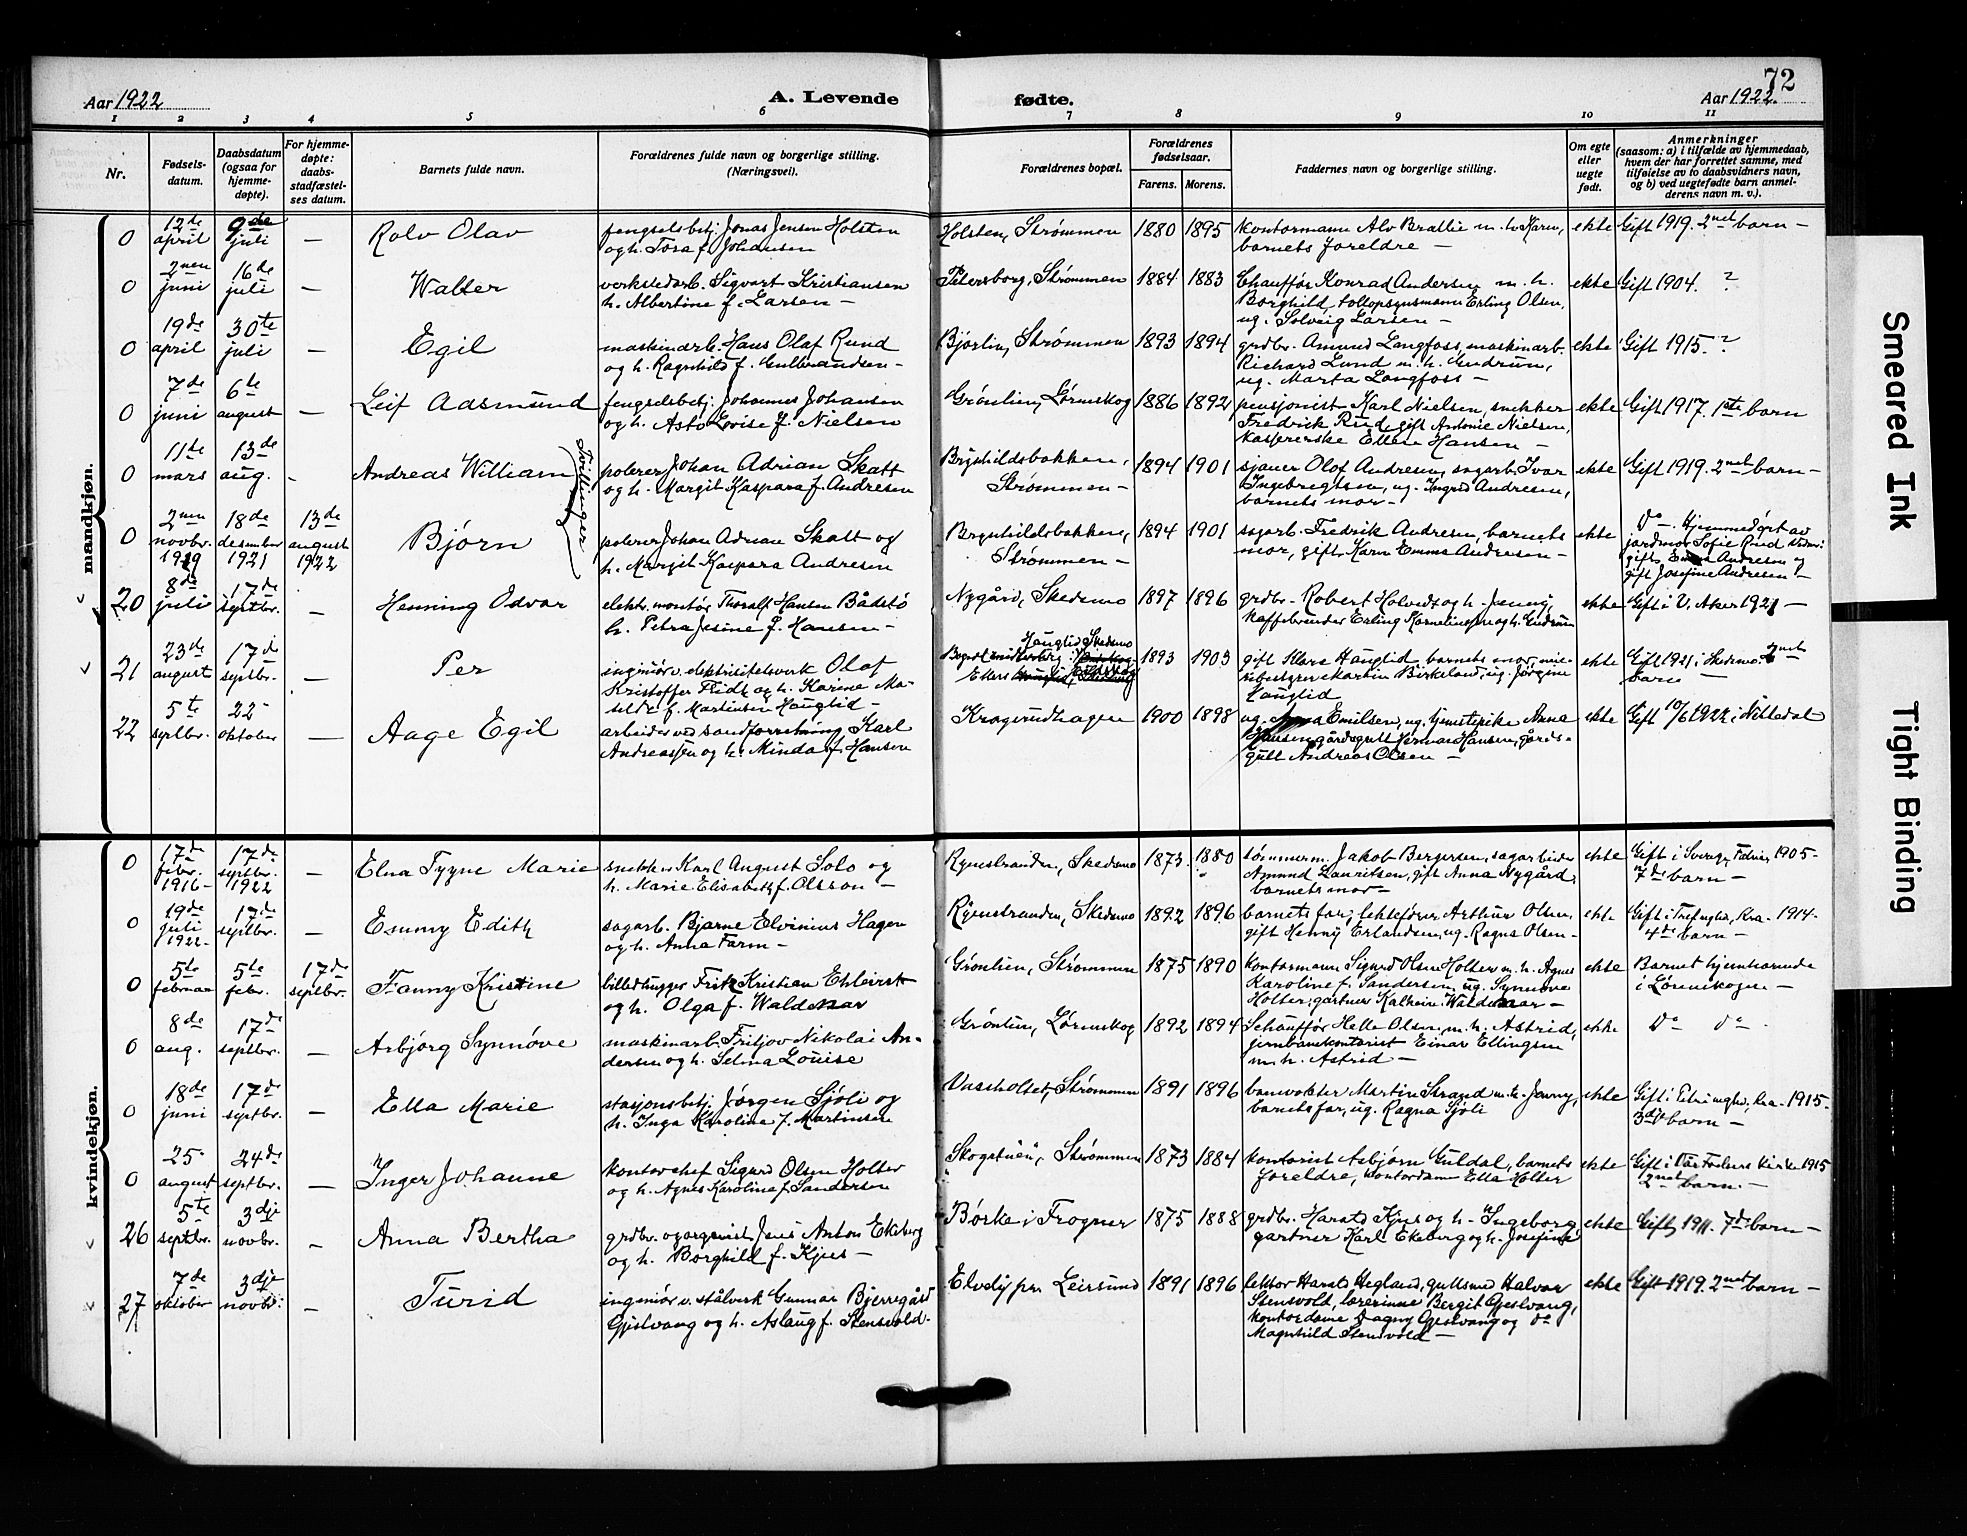 72
Aar 1922
A. Levende fødte.
Aar 1922.
1 2 3 4 5 6 7 8 9 10 11
Nr.
Fødsels-
datum.
Daabsdatum
(ogsaa for
hjemme-
døpte).
For hjemme-
døpte:
daabs-
stadfæstel-
ses datum.
Barnets fulde navn.
Forældrenes fulde navn og borgerlige stilling.
(Næringsvei).
Forældrenes bopæl.
Forældrenes
fødselsaar.
Farens. Morens.
Faddernes navn og borgerlige stilling.
Om egte
eller
uegte
født.
Anmerkninger
(saasom: a) i tilfælde av hjemmedaab,
hvem der har forrettet samme, med
tilføielse av to daabsvidners navn,
og b) ved uegtefødte barn anmel-
derens navn m. v.).
mandkjøn.
0 12de april 9de juli — Rolv Olav
fengselsbetj. Jonas Jensen Holsten
og h. Tora f. Johansen
Holsten, Strømmen 1880 1895
kontormann Alv Brattlie m. h. Karen,
barnets foreldre —
ekte Gift 1919. 2net barn —
0 2nen juni 16de juli — Walter
verkstedarb. Sigvart Kristiansen
h. Albertine f. Larsen —
Petersborg, Strømmen 1884 1883
Chauffør Konrad Andersen m. h.
Borghild, tollopsynsmann Erling Olsen,
ug. Solveig Larsen —
ekte Gift 1904. ?
0 19de april 30te juli — Egil
maskinarb. Hans Olaf Rund
og h. Ragnhild f. Gulbrandsen —
Bjørlin, Strømmen 1893 1894
grdbr. Amund Langfoss, maskinarb.
Richard Lund m. h. Gudrun,
ug. Marta Langfoss —
ekte Gift 1915. ?
0 7de juni 6te august — Leif Aasmund
fengselsbetj. Johannes Johansen
og h. Asta Lovise f. Nielsen
Grønlin, Lørenskog 1886 1892
pensjonist Karl Nielsen, snekker
Fredrik Rud, gift Antonie Nielsen,
kassererske Ellen Hansen —
ekte Gift 1917. 1ste barn
0 11te mars 13de aug. - Andreas William
Tvillinger
polerer Johan Adrian Skatt
og h. Margit Kaspara f. Andresen
Brynhildsbakken,
Strømmen —
1894 1901
sjauer Olaf Andresen, sagarb. Ivar
Ingebregtsen, ug. Ingrid Andresen,
barnets mor —
ekte Gift 1919. 2net barn —
0 2nen novbr. 1919 18de desember 1921 13de august 1922 Bjørn
polerer Johan Adrian Skatt og
h. Margit Kaspara Andresen
Brynhildsbakken,
Strømmen —
1894 1901
sagarb. Fredrik Andresen, barnets
mor, gift Karen Emma Andresen —
ekte Do —. Hjemmedøpt av
jordmor Sofie Rud
gift Emma Andresen og
gift Josefine Andresen —
20 8de juli 17de septbr. — Henning Odvar
elektr. montør Thoralf Hansen Bådstø
h. Petra Jesine f. Hansen —
Nygård, Skedsmo 1897 1896
grdbr. Robert Holvedt og h. Jenny,
kaffebrender Erling Kornelinssen og h. Gudrun
ekte Gift i V. Aker 1921 —
21 23de august 17de septbr. Per
ingeniør v. elektrisitetsverk Olaf
Kristoffer Fridt og h. Karine Ma-
tilde f. Martinsen Hauglid —
Hauglid, Skedsmo
1893 1903
gift Klara Hauglid, barnets mor,
Birkeland, ug. Jørgine
Hauglid
ekte Gift 1921 i Skedsmo. 2net
barn —
22 5te septbr. 22- oktober — Aage Egil
arbeider ved sandforretning Karl
Andreassen og h. Minda f. Hansen
Kragerudhagen 1900 1898
ug. Anna Emilsen, ug. tjenstepike Anna
Hansen gårdsgutt Herman Hansen, gårds-
gutt Andreas Olsen —
ekte Gift 10/6 1922 i Nittedal
kvindekjøn.
0 17de febr. 1916- 17de septbr. 1922 — Elna Tyyne Marie
snekker Karl August Solo og
h. Marie Elisabeth f. Olsson —
Ryenstranden, Skedsmo 1873. 1880
tømmerm. Jakob Bergersen, sagarbeider
Amund Lauritsen, gift Anna Nygård,
barnets mor —
ekte Gift i Sverige, Falun, 1905-
7de barn —
0 19de juli 1922- 17de septbr. — Emmy Edith
sagarb. Bjarne Elvinius Hagen
og h. Anna Farm —
Ryenstranden, Skedsmo 1892 1896
barnets far, fektefører Arthur Olsen,
gift Henny Erlandsen, ug. Ragna Olsen —
ekte Gift i Trefoldighet, Kra. 1914-
4de barn —
0 5te februar 5te febr. 17de septbr. Fanny Kristine
billedhugger Fritz Kristian Ehleirst
og h. Olga f. Waldemar
Grønlien, Strømmen 1875 1890
kontormann Sigurd Olsen Holter m. h. Agnes
Karoline f. Sandersen, ug. Synnøve
Holter, gartner Waldemar —
ekte Barnet hjemhørende
i Lørenskogen —
0 8de aug. 17de septbr. — Asbjørg Synnøve
maskinarb. Fritjov Nikolai An-
dersen og h. Selma Louise
Grønlin, Lørenskog 1892 1894
Schauffør Helle Olsen m. h. Astrid,
jernbanekontorist Einar Ellingsen
m. h. Astrid —
ekte Do Do -
0 18de juni 17de septbr. — Ella Marie
stasjonsbetj. Jørgen Sjøli og
h. Inga Karoline f. Martinsen
Vassholtet, Strømmen 1891 1896
banevokter Martin Strand m. h. Jenny,
barnets far, ug. Ragna Sjøli
ekte Gift i Kra. 1915-
3dje barn —
0 25- august 24de septbr. — Inger Johanne
kontorchef Sigurd Olsen Holter
og h. Agnes Karoline f. Sandersen
Skogstuen, Strømmen 1873 1884
kontorist Asbjørn Guldal, barnets
foreldre, kontordame Ella Holter
ekte Gift i Vår Frelsers kirke 1915
2net barn. —
26 5te septbr. 3dje novbr. - Anna Bertha
grdbr. og organist Jens Anton Ekeberg
og h. Borghild f. Kjus —
Børke i Frogner 1875 1888
grdbr. Harald Kjus og h. Ingeborg
gartner Karl Ekeberg og h. Josefine
ekte Gift 1911. 7de barn —
27 7de oktober 3dje novbr. — Turid
ingeniør v. stålverk Gunnar Bjerregård
Gjeslvang og h. Aslaug f. Stensvold-
Elvely pr. Leirsund 1891 1896
lektor Harald Hegland, guttsmed Halvar
Stensvold, lærerinne Bergit Gjeslvang,
kontordame Dagny Gjeslvang og do
Magnhild Stensvold —
ekte Gift 1919. 2net barn —
Smeared Ink
Tight Binding